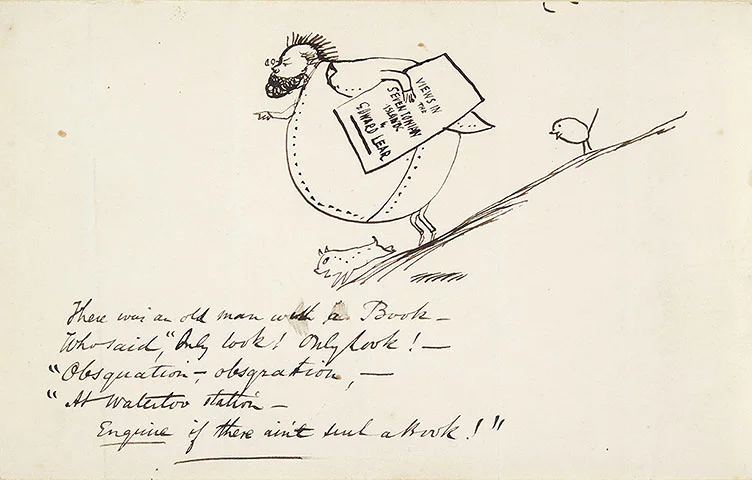 VIEWS IN
THE
SEVEN IONIAN
ISLANDS
by
EDWARD LEAR
There was an old man with a Book —
Who said, "Only look! Only look! —
"Obsquation –, obsgration, —
"At Waterloo station —
Enquire if there ain't such a Book!"